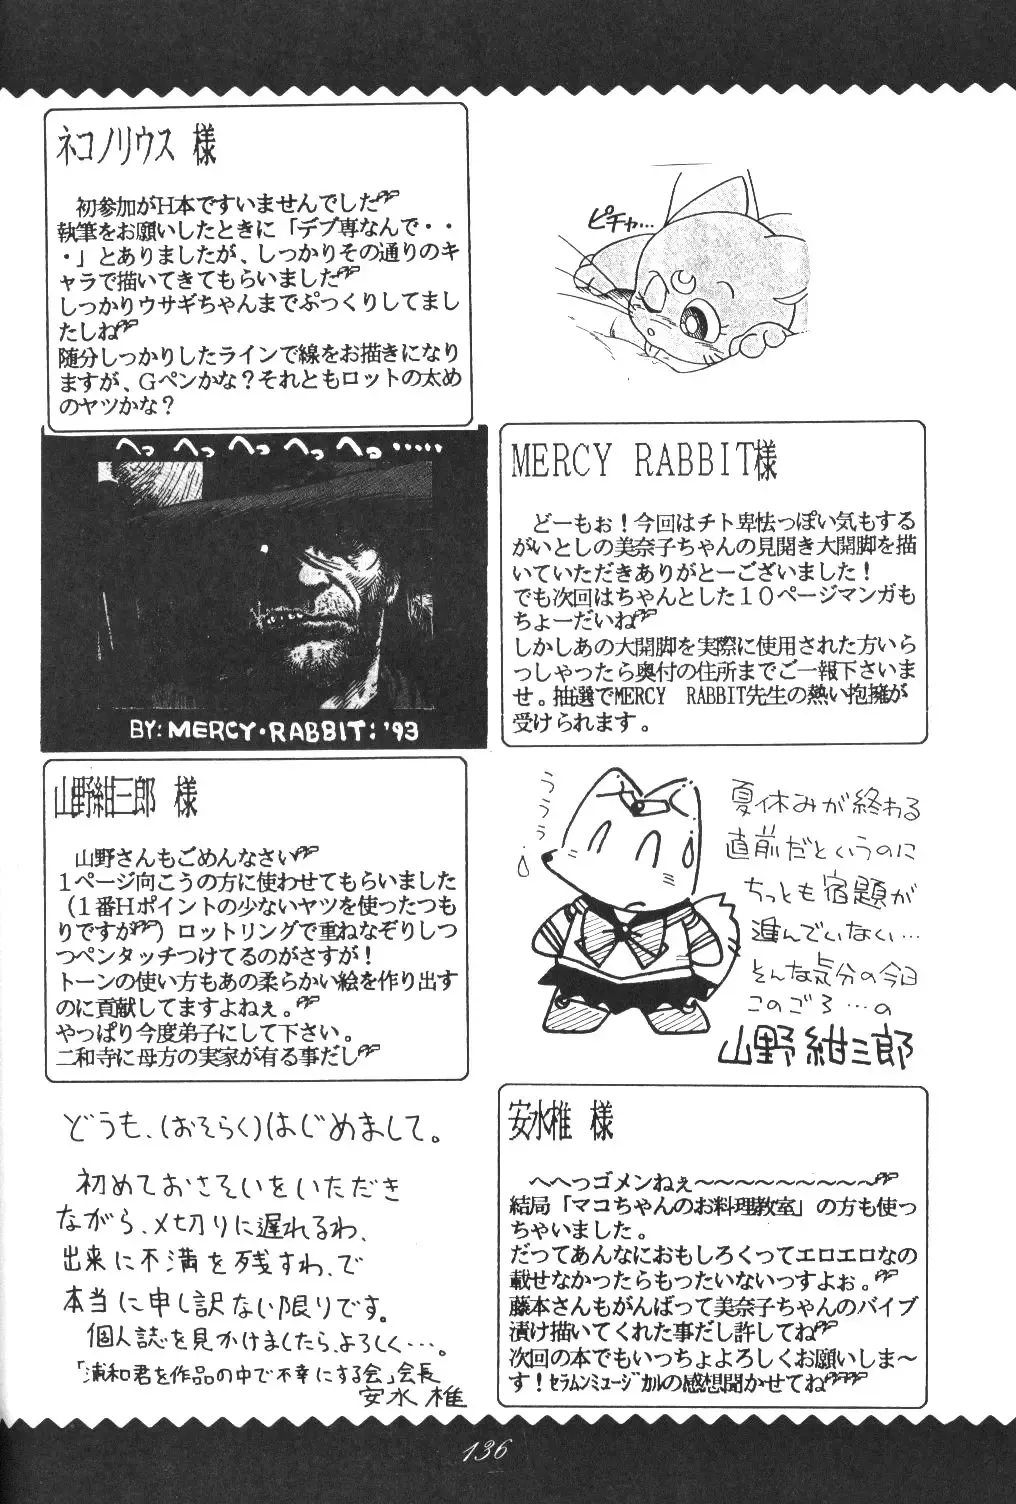 ネコノリウス 様
初参加がH本ですいませんでした
執筆をお願いしたときに「デブ専なんで・・
・」とありましたが、しっかりその通りのキ
ャラで描いてきてもらいました
しっかりウサギちゃんまでぷっくりしてまし
たしね
随分しっかりしたラインで線をお描きになり
ますが、Gペンかな?それともロットの太め
のヤツかな?
ピチャ…
へっ へっ へっ へっ へっ・・・・・
BY: MERCY・RABBIT: '93
MERCY RABBIT様
どーもぉ!今回はチト卑怯っぽい気もする
がいとしの美奈子ちゃんの見開き大開脚を描
いていただきありがとーございました!
でも次回はちゃんとした10ページマンガも
ちょーだいね
しかしあの大開脚を実際に使用された方いら
っしゃったら奥付の住所までご一報下さいま
せ。抽選でMERCY RABBIT先生の熱い抱擁が
受けられます。
山野紺三郎 様
山野さんもごめんなさい
1ページ向こうの方に使わせてもらいました
(1番Hポイントの少ないヤツを使ったつも
りですが)ロットリングで重ねなぞりしつ
つペンタッチつけてるのがさすが!
トーンの使い方もあの柔らかい絵を作り出す
のに貢献してますよねぇ。
やっぱり今度弟子にして下さい。
二和寺に母方の実家が有る事だし
ううぅ
夏休みが終わる
直前だというのに
ちっとも宿題が
進んでいない…
そんな気分の今日
このごろ…の
山野紺三郎
どうも、(おそらく)はじめまして。
初めておさそいをいただき
ながら、〆切りに遅れるわ、
出来に不満を残すわ、で
本当に申し訳ない限りです。
個人誌を見かけましたら、よろしく…。
「浦和君を作品の中で不幸にする会」会長
安水椎
安水椎 様
へへっゴメンねぇ〜〜〜〜〜〜〜〜〜
結局「マコちゃんのお料理教室」の方も使っ
ちゃいました。
だってあんなにおもしろくってエロエロなの
載せなかったらもったいないっすよぉ。
藤本さんもがんばって美奈子ちゃんのバイブ
漬け描いてくれた事だし許してね
次回の本でもいっちょよろしくお願いしま〜
す!セラムンミュージカルの感想聞かせてね
136